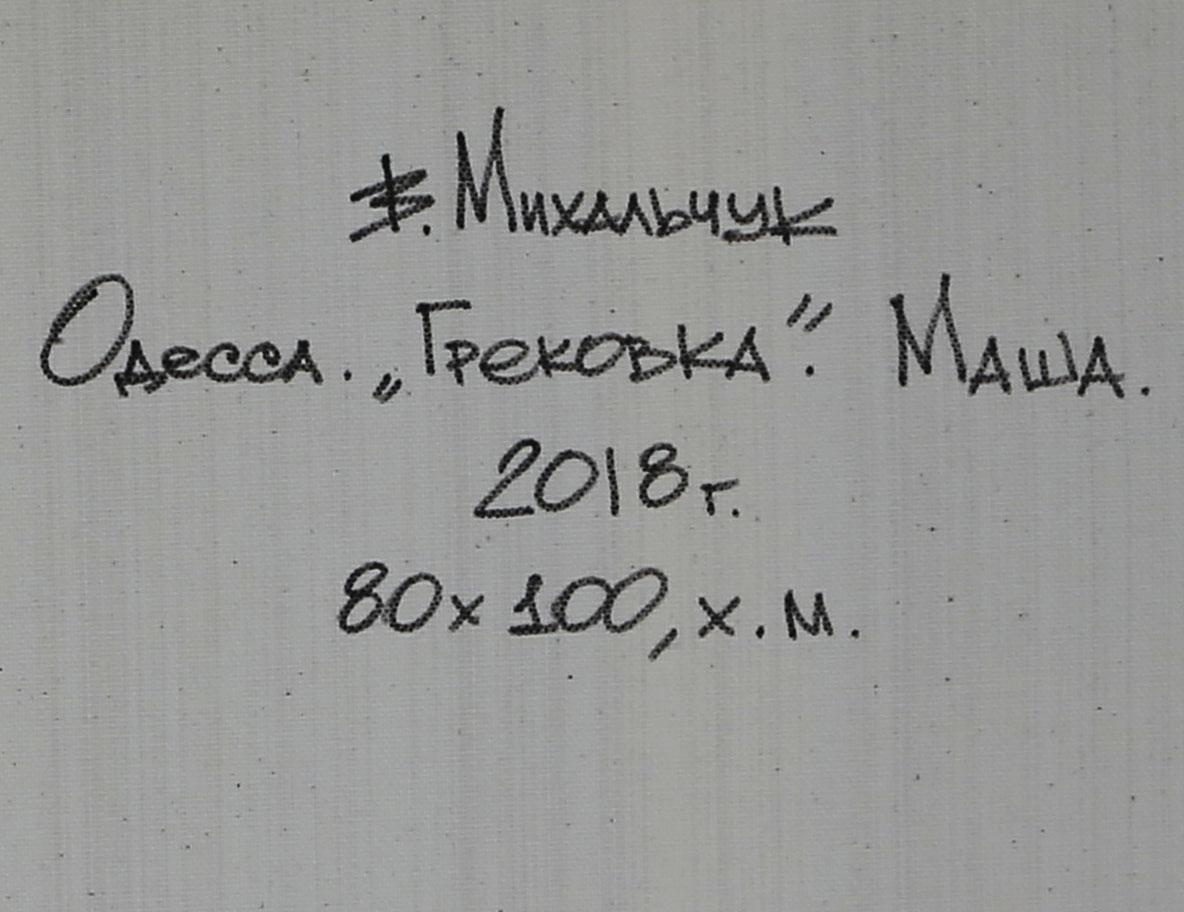 Михальчук
Одесса. „Грековка”. Маша.
2018 г.
80х100, х. м.